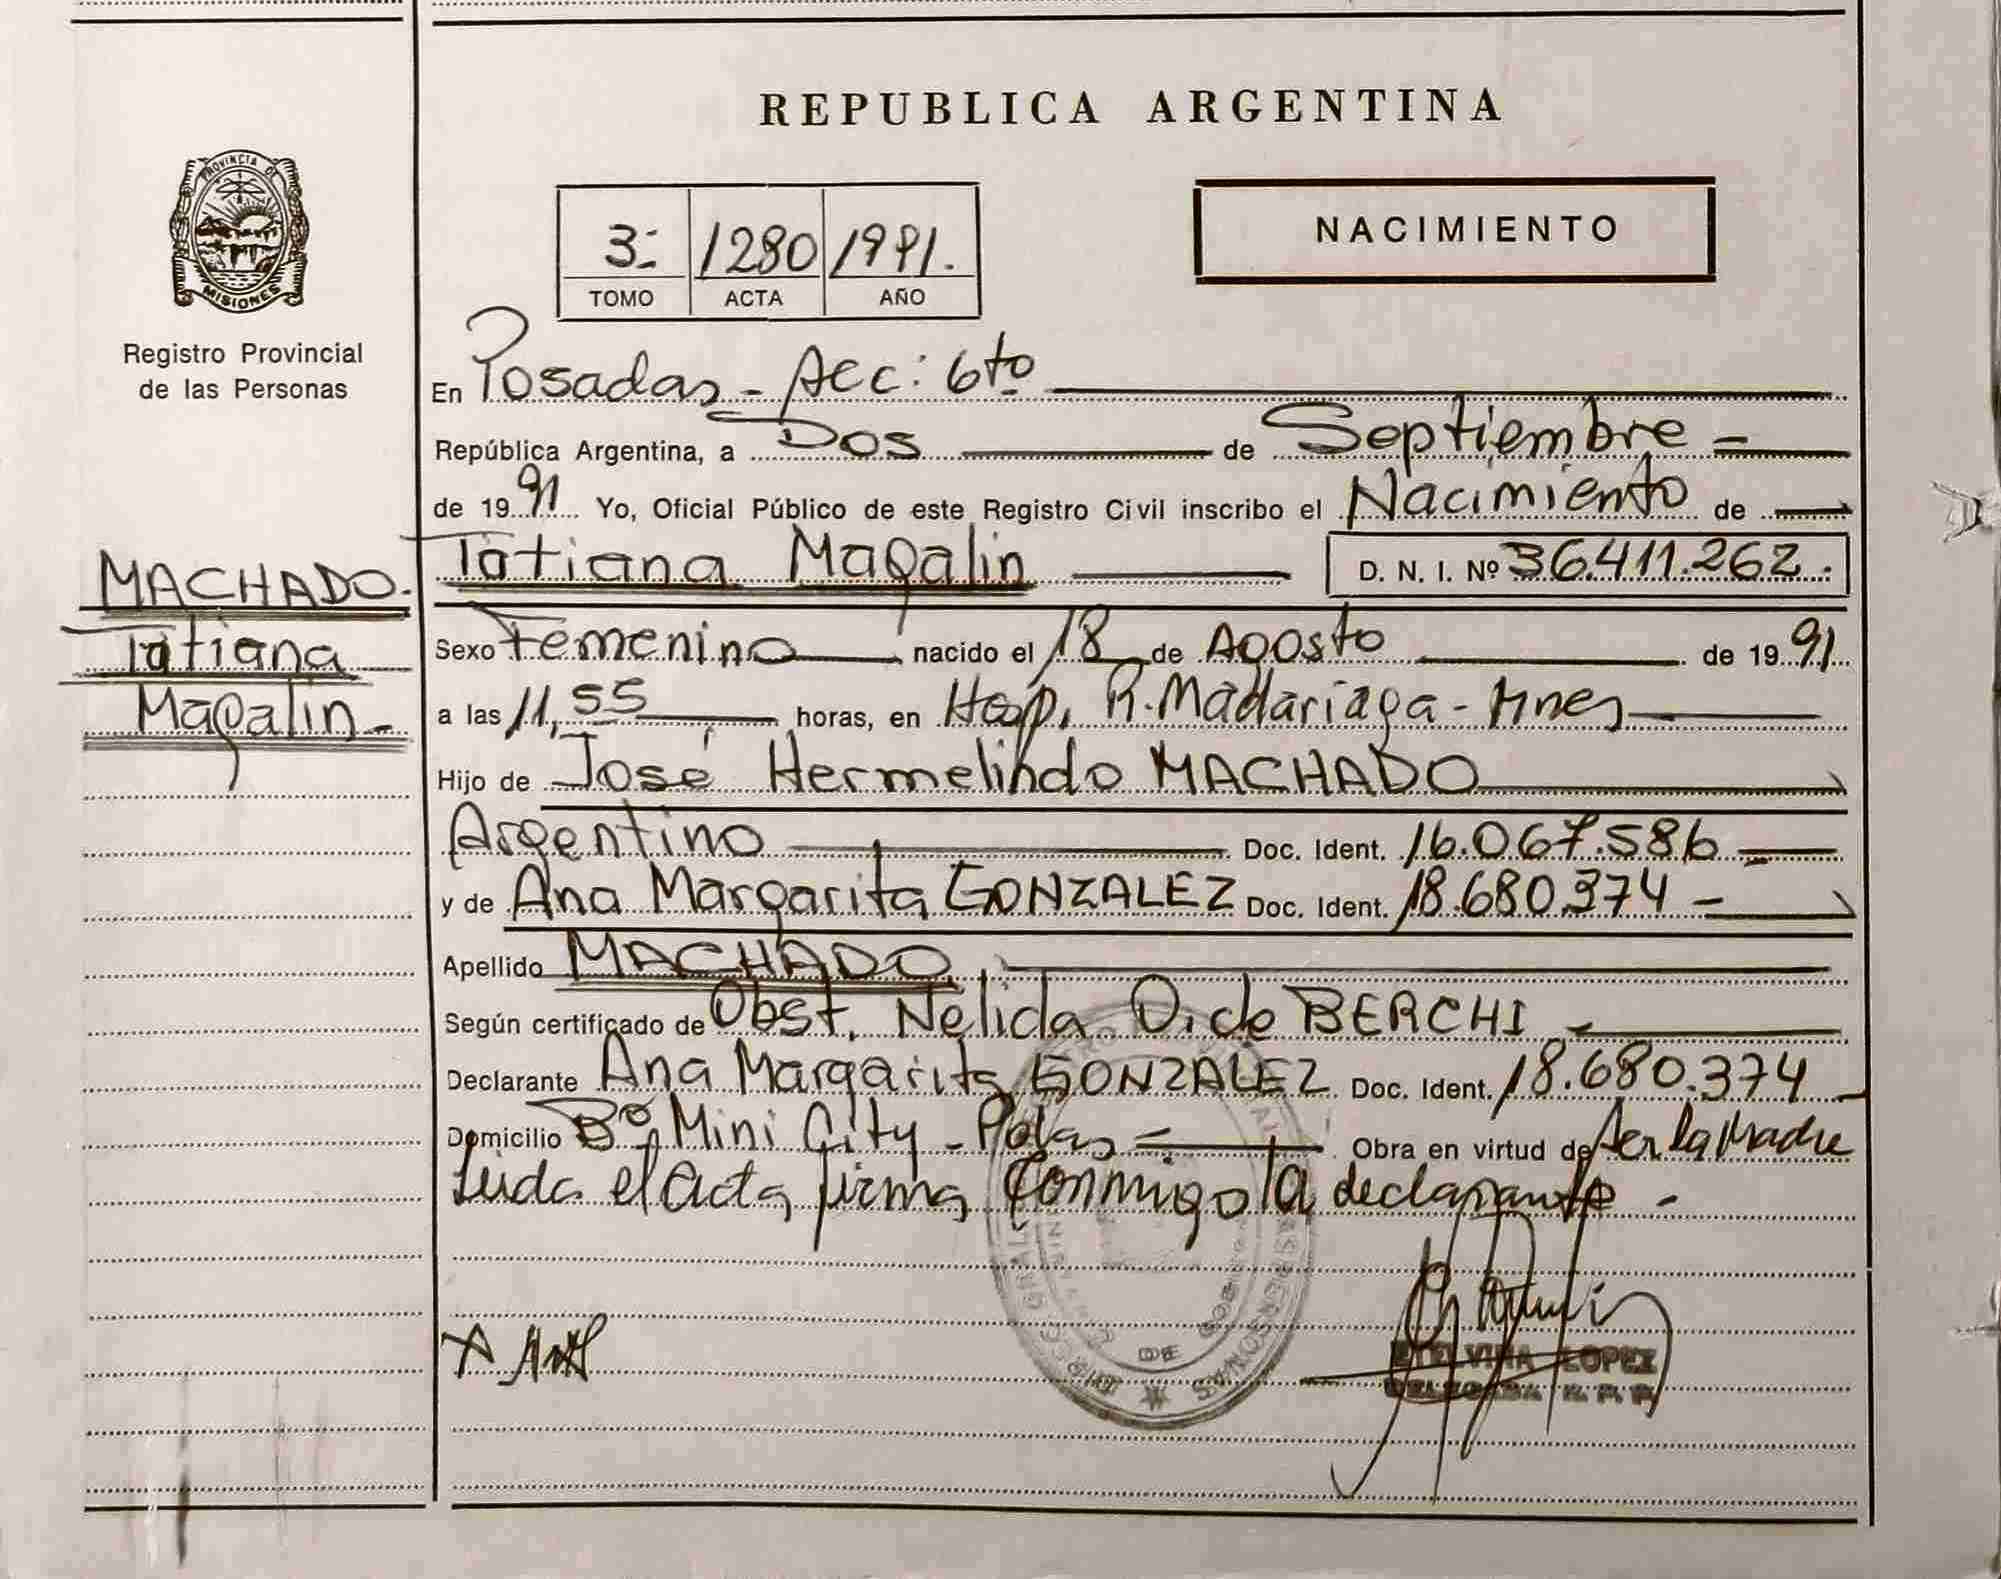 REPUBLICA ARGENTINA
PROVINCIA DE
MISIONES
Registro Provincial
de las Personas
3- 1280 1991.
TOMO ACTA AÑO
NACIMIENTO
En Posadas - Secc: 6to
República Argentina, a Dos de Septiembre
de 1991 Yo, Oficial Público de este Registro Civil inscribo el Nacimiento de
Tatiana Magalin D. N. I. Nº 36.411.262.
MACHADO.
Tatiana
Magalin
Sexo Femenino nacido el 18 de Agosto de 1991
a las 11,55 horas, en Hosp. R. Madariaga - Mnes
Hijo de José Hermelindo MACHADO
Argentino Doc. Ident. 16.067.586
y de Ana Margarita GONZALEZ Doc. Ident. 18.680.374
Apellido MACHADO
Según certificado de Obst. Nélida O. de BERCHI
Declarante Ana Margarita GONZALEZ Doc. Ident. 18.680.374
Domicilio Bº Mini City - Pdas Obra en virtud de ser la Madre
Leida el acta, firma conmigo la declarante -
ETELVINA LOPEZ
DELEGADA R. P. P.